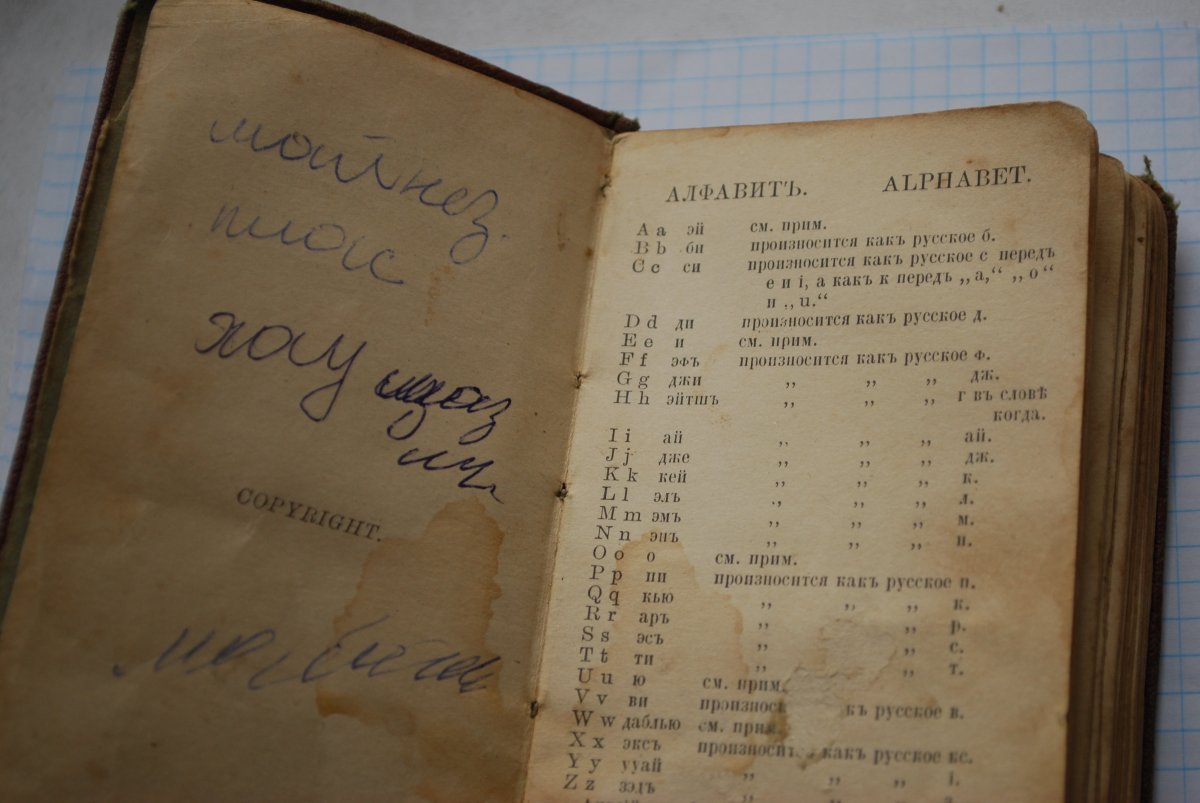 мойнез.
плос
хау
COPYRIGHT.
АЛФАВИТЪ. ALPHABET.
A a эй см. прим.
B b би произносится какъ русское б.
C c си произносится какъ русское с передъ
е и i, а какъ к передъ „a,“ „o“
и „u.“
D d ди произносится какъ русское д.
E e и см. прим.
F f эфъ произносится какъ русское ф.
G g джи „ „ „ дж.
H h эйтшъ „ „ „ г въ словѣ
когда.
I i ай „ „ „ ай.
J j дже „ „ „ дж.
K k кей „ „ „ к.
L l элъ „ „ „ л.
M m эмъ „ „ „ м.
N n энъ „ „ „ н.
O o о см. прим.
P p пи произносится какъ русское п.
Q q кью „ „ „ к.
R r аръ „ „ р.
S s эсъ „ „ с.
T t ти „ „ т.
U u ю см. прим.
V v ви произнос къ русское в.
W w даблью см. прим.
X x эксъ произносится какъ русское кс.
Y yууай „ „ „ i.
Z z зэдъ „ з.